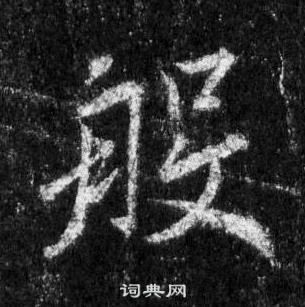 般
词典网